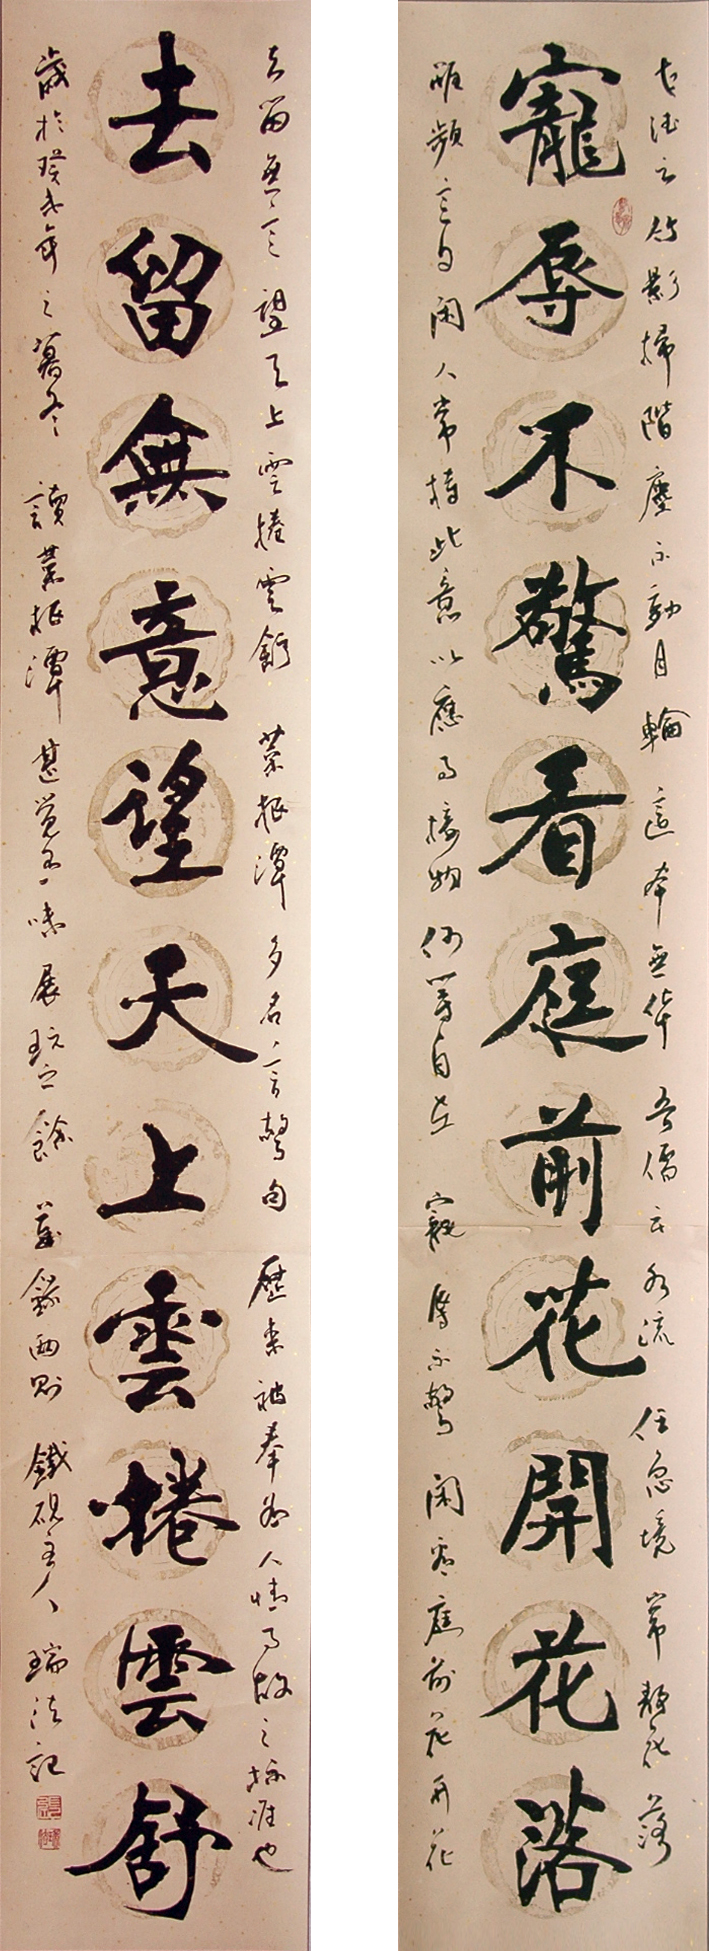 古德云竹影掃階塵不動月輪無吾儒云水流任急境常靜花落
寵辱不驚看庭前花開花落
雖頻意自閑人常持此意以應事接物何等自在寵辱不驚閑看庭前花開花
去留無意望天上雲捲雲舒菜根潭多名言驚句歷來被奉為人情事故之標准也
去留無意望天上雲捲雲舒
歲於癸未年之暮冬讀菜根潭甚覺味展玩之餘錄兩則鐵硯主人瑞法記